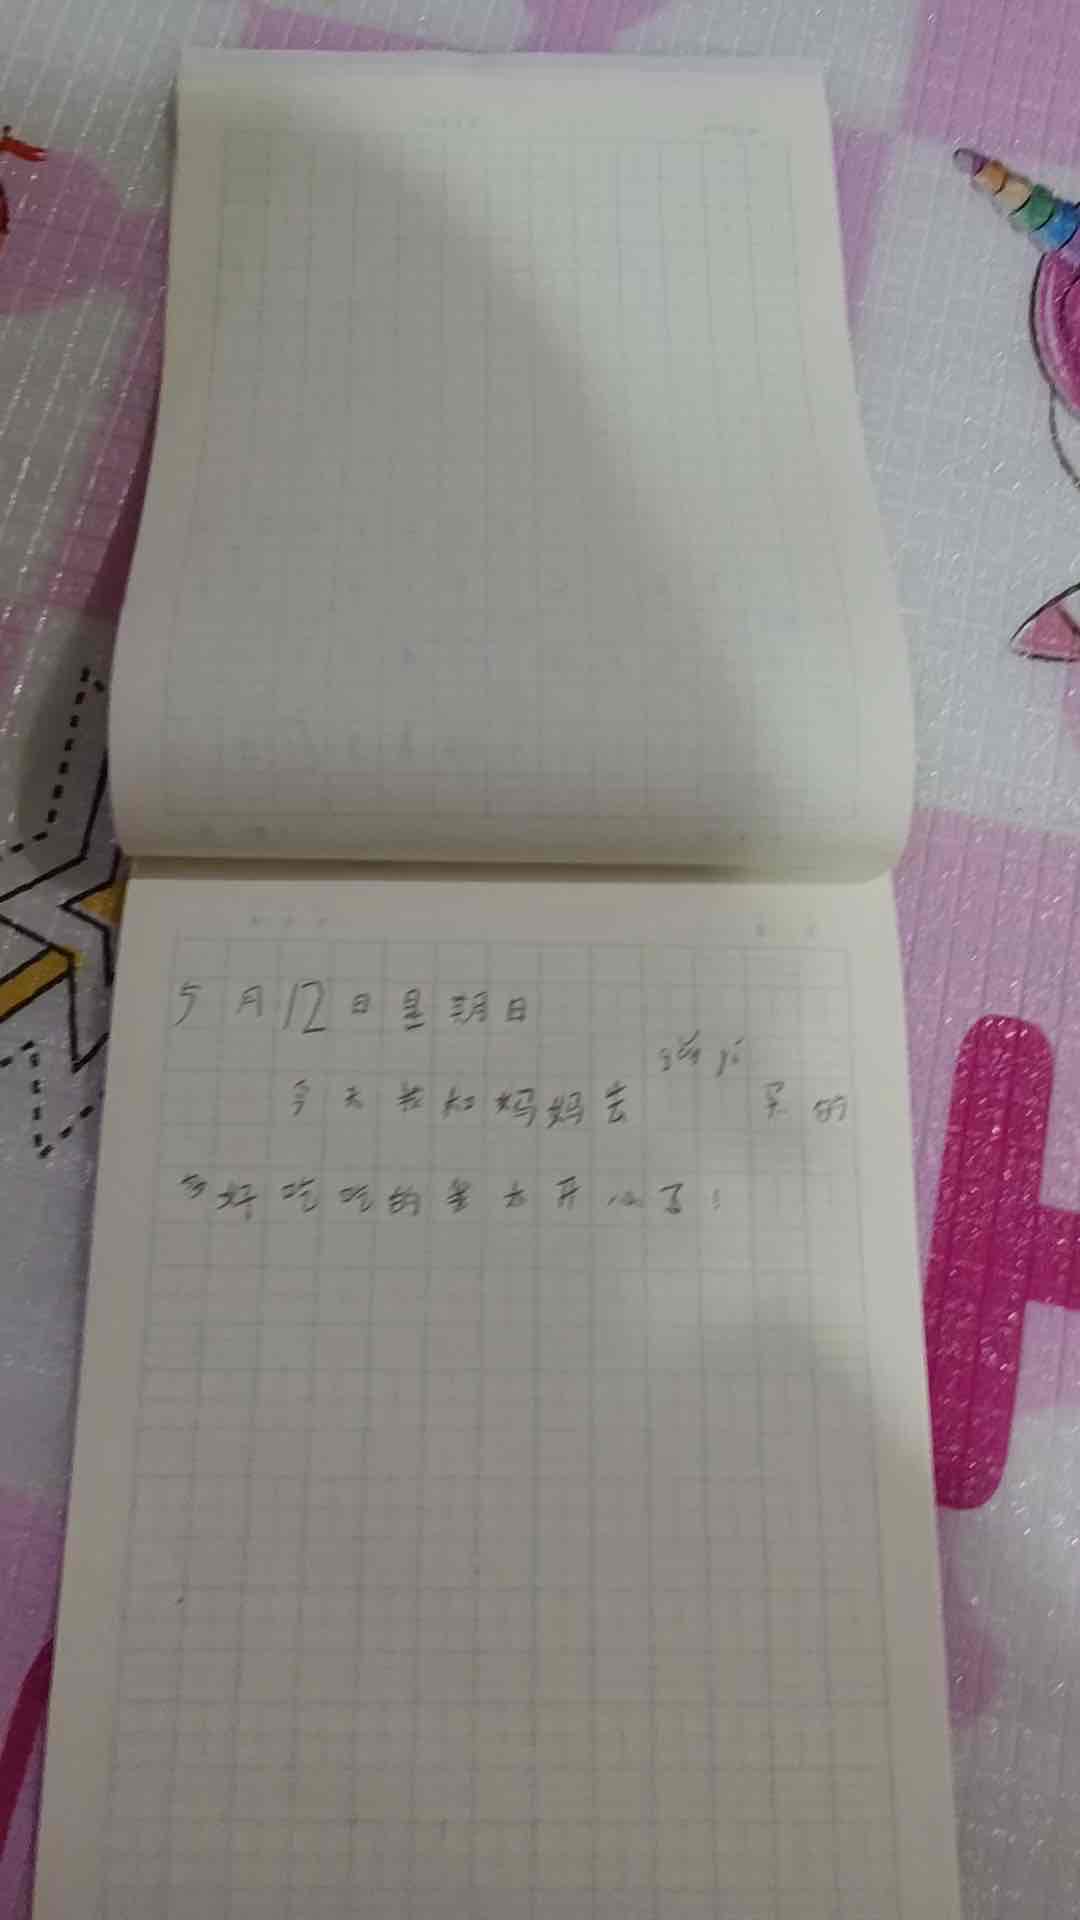 5月12日星期日
今天我和妈妈去 买的
好吃吃的 太开心了!